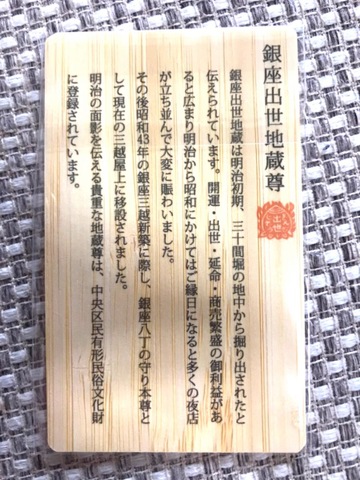 銀座出世地蔵尊
出世
銀座出世地蔵は明治初期、三十間堀の地中から掘り出されたと
伝えられています。開運・出世・延命・商売繁盛の御利益があ
ると広まり明治から昭和にかけてはご縁日になると多くの夜店
が立ち並んで大変に賑わいました。
その後昭和43年の銀座三越新築に際し、銀座八丁の守り本尊と
して現在の三越屋上に移設されました。
明治の面影を伝える貴重な地蔵尊は、中央区民有形民俗文化財
に登録されています。